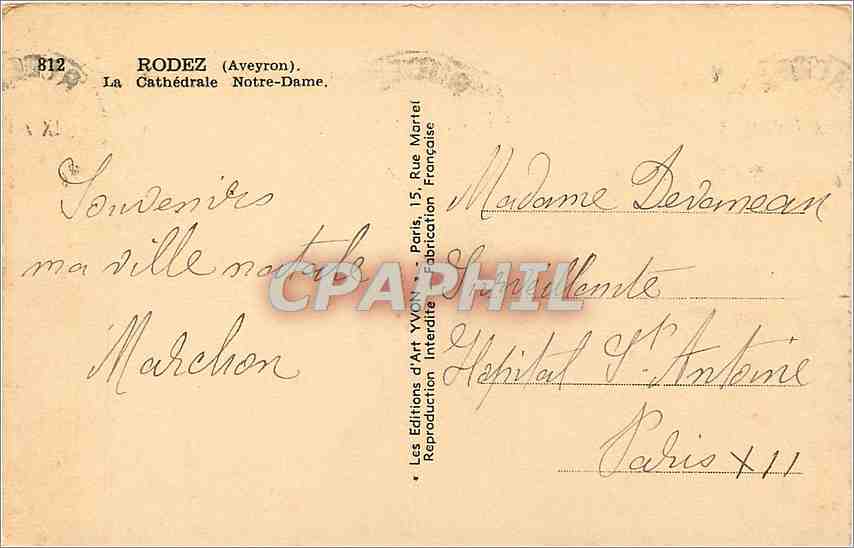 812 RODEZ (Aveyron).
La Cathédrale Notre-Dame.
Souvenirs
ma ville natale
Marchon
• Les Editions d'Art YVON • - Paris, 15, Rue Martel
Reproduction Interdite - Fabrication Française
Madame Devaneau
Surveillante
Hopital St. Antoine
Paris XII
CPAPHIL